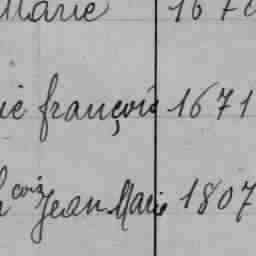 Marie 167
françois 1671
Jean Marie 1807